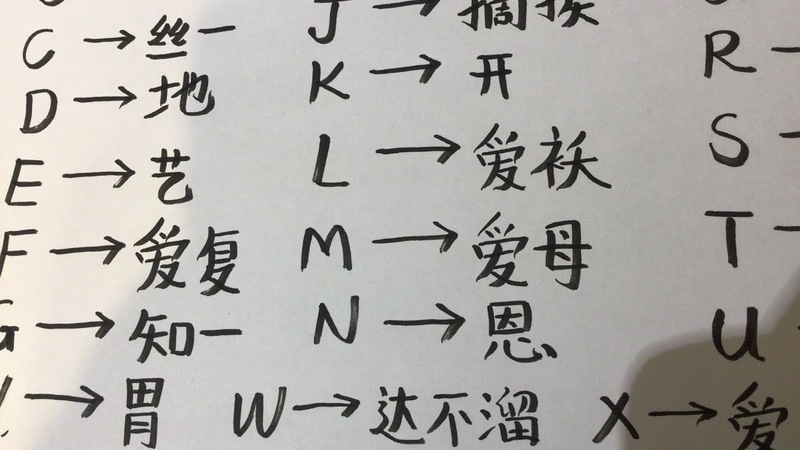 C → 丝一
D → 地
E → 艺
F → 爱复
G → 知一
J →
K → 开
L → 爱袄
M → 爱母
N → 恩
R
S
T
U
→ 胃
W → 达不溜
X → 爱